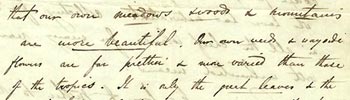 that our own meadows & woods & mountains
are more beautiful. Our own weeds & wayside
flowers are far prettier & more varied than those
of the tropics. It is only the great leaves & the